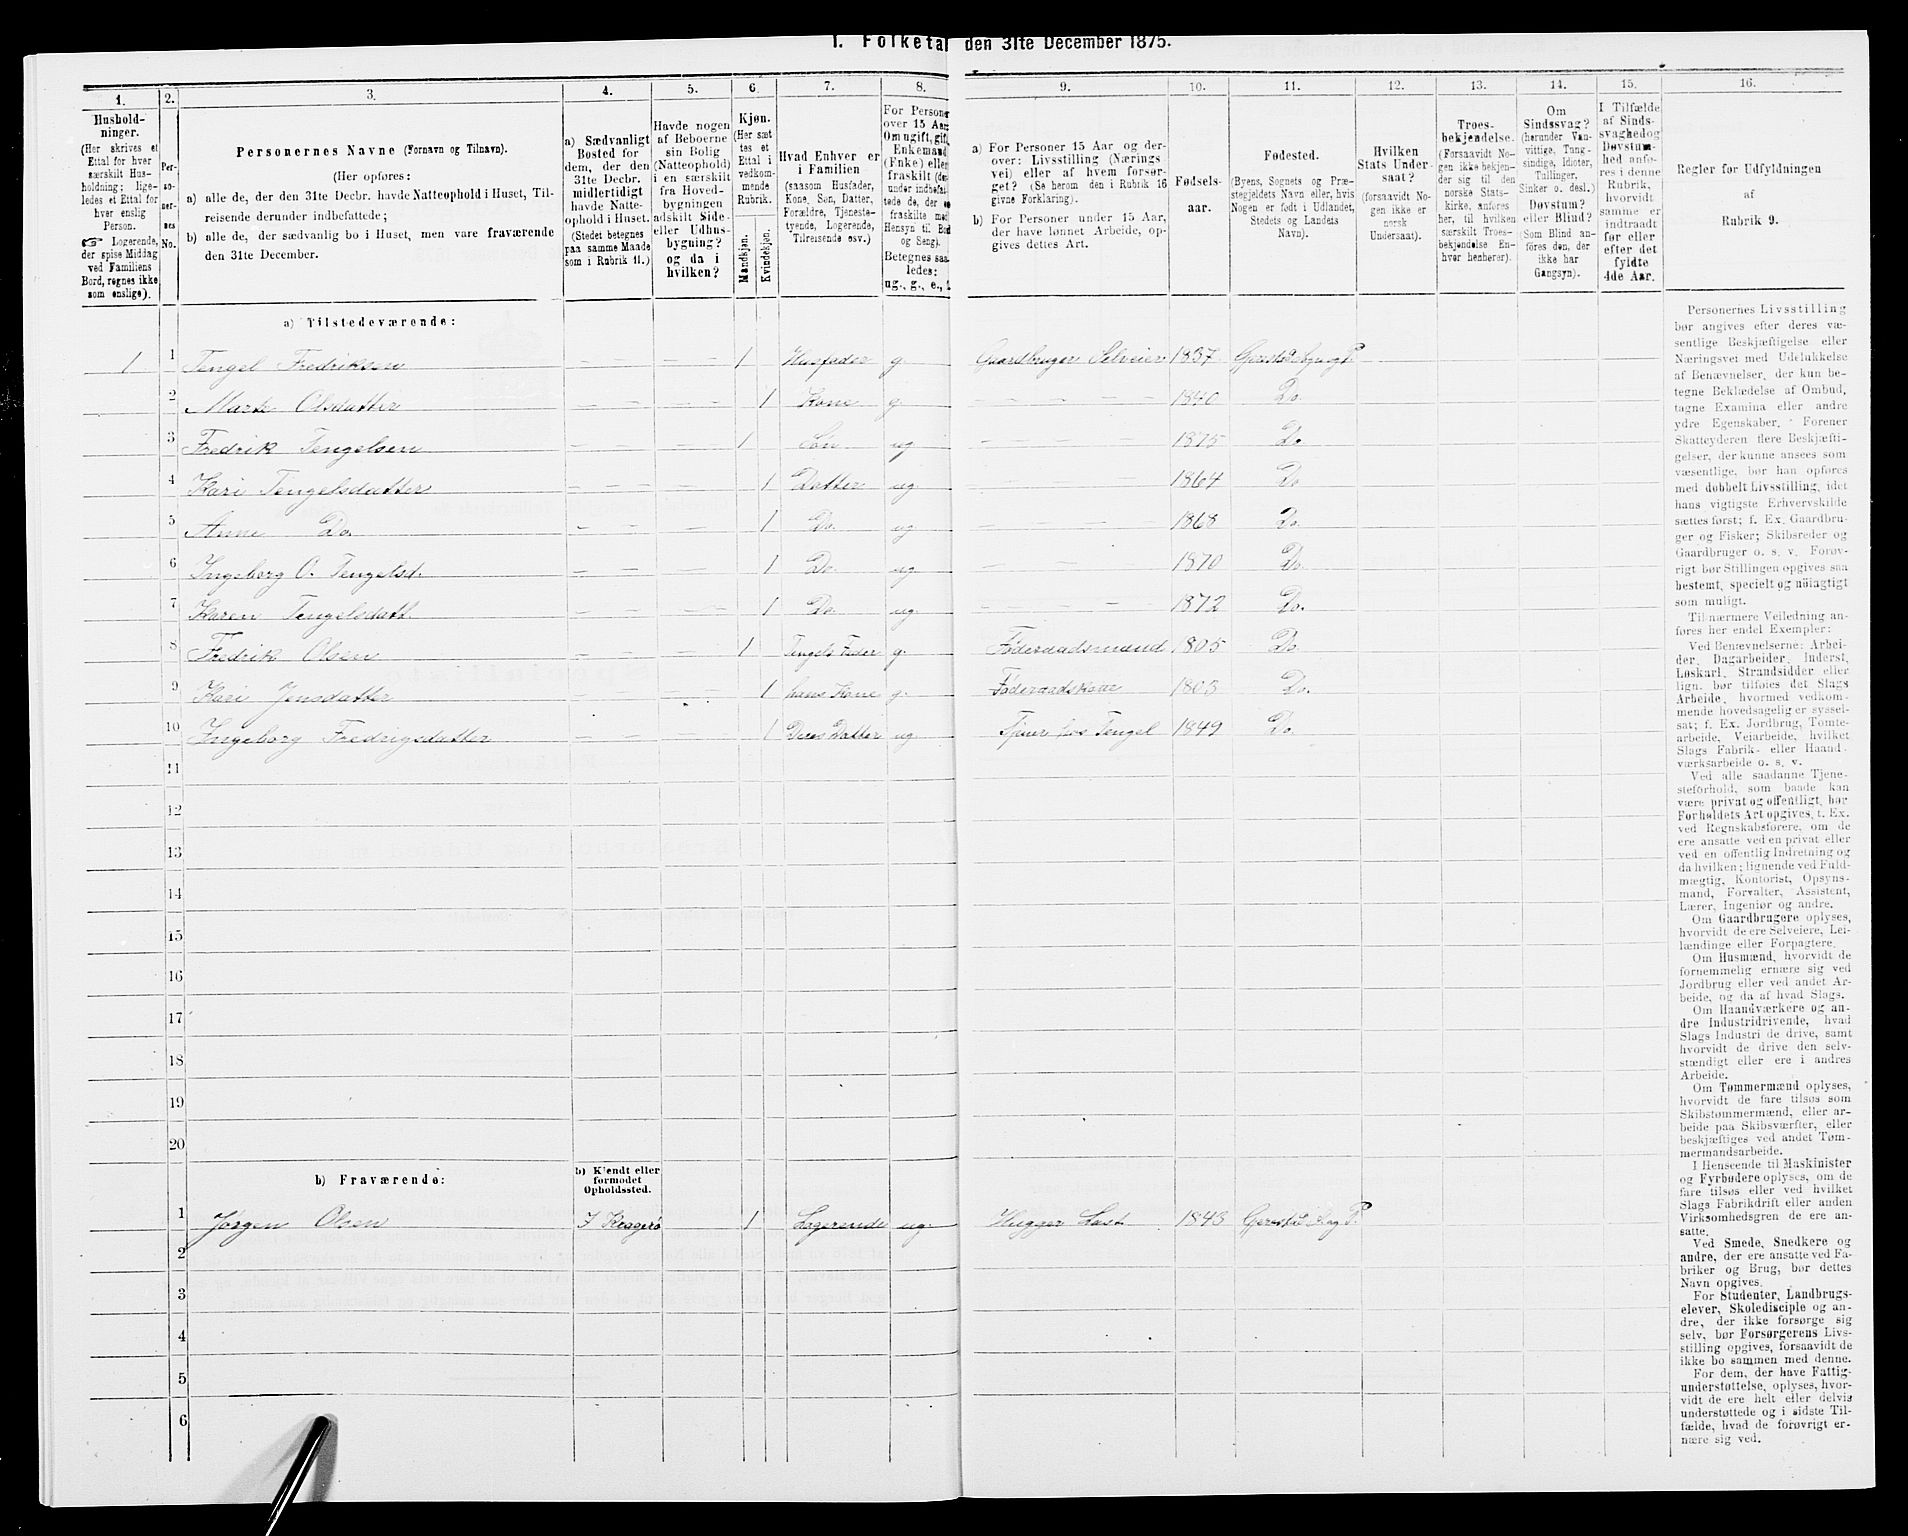 1. Folketal den 31te December 1875.
1.
Hushold-
ninger.
(Her skrives et
Ettal for hver
særskilt Hus-
holdning; lige-
ledes et Ettal for
hver enslig
Person.
☞ Logerende,
der spise Middag
ved Familiens
Bord, regnes ikke
som enslige).
2.
Per-
so-
ner-
nes
No.
3.
Personernes Navne (Fornavn og Tilnavn).
(Her opføres:
a) alle de, der den 31te Decbr. havde Natteophold i Huset, Til-
reisende derunder indbefattede;
b) alle de, der sædvanlig bo i Huset, men vare fraværende
den 31te December.
4.
a) Sædvanligt
Bosted for
dem, der den
31te Decbr.
midlertidigt
havde Natte-
ophold i Huset.
(Stedet betegnes
paa samme Maade
som i Rubrik 11.)
5.
Havde nogen
af Beboerne
sin Bolig
(Natteophold)
i en særskilt
fra Hoved-
bygningen
adskilt Side-
eller Udhus-
bygning?
og da i
hvilken?
6.
Kjøn.
(Her sæt
tes et
Ettal i
vedkom-
mende
Rubrik.
Mandkjøn.
Kvindekjøn.
7.
Hvad Enhver er
i Familien
(saasom Husfader,
Kone, Søn, Datter,
Forældre, Tjeneste-
tyende, Logerende,
Tilreisende osv.)
8.
For Persone
over 15 Aar
Om ugift, gift,
Enkemand
(Enke) eller
fraskilt (der
under indbefat-
tede de, der er
fraskilte med
Hensyn til Bo
og Seng).
Betegnes saa
ledes:
ug., g., e., f.
9.
a) For Personer 15 Aar og der-
over: Livsstilling (Nærings
vei) eller af hvem forsør-
get? (Se herom den i Rubrik 16
givne Forklaring).
b) For Personer under 15 Aar,
der have lønnet Arbeide, op-
gives dettes Art.
10.
Fødsels-
aar.
11.
Fødested.
(Byens, Sognets og Præ-
stegjeldets Navn eller, hvis
Nogen er født i Udlandet,
Stedets og Landets
Navn).
12.
Hvilken
Stats Under-
saat?
(forsaavidt No-
gen ikke er
norsk
Undersaat).
13.
Troes-
bekjendelse.
(Forsaavidt No-
gen ikke bekjen-
der sig til den
norske Stats-
kirke, anføres
her, til hvilken
særskilt Troes-
bekjendelse En-
hver henhører).
14.
Om
Sindssvag?
(herunder Van-
vittige, Tung-
sindige, Idioter,
Tullinger,
Sinker o. desl.)
Døvstum?
eller Blind?
(Som Blind an-
føres den, der
ikke har
Gangsyn).
15.
I Tilfælde
af Sinds-
svaghed og
Døvstum-
hed anfø-
res i denne
Rubrik,
hvorvidt
samme er
indtraadt
før eller
efter det
fyldte
4de Aar.
16.
Regler for Udfyldningen
af
Rubrik 9.
a) Tilstedeværende:
1 1 Tengel Fredriksen — — — — 1 Husfader g. Gaardbruger Selveier 1837
2 Marte Olsdatter — — — — 1 Kone g. — — — 1840 Do.
3 Fredrik Tengelsen — — — — 1 Søn ug — — — 1875 Do
4 Kari Tengelsdatter — — — — 1 Datter ug — — — 1864 Do
5 Anne Do. — — — — 1 Do. ug — — — 1868 Do.
6 Ingeborg O. Tengelsd. — — — — 1 Do. ug. — — — 1870 Do.
7 Karen Tengelsdatt. — — — — 1 Do. ug — — — 1872 Do.
8 Fredrik Olsen — — — — 1 Tengels Fader g. Føderaadsmand 1805 Do.
9 Kari Jensdatter — — — — 1 hans Kone g. Føderaadskone 1805 Do.
10 Ingeborg Fredrigsdatter — — — — 1 Deres Datter ug Tjener hos Tengel 1849 Do
11
12
13
14
15
16
17
18
19
20
b) Fraværende:
b) Kjendt eller
formodet
Opholdssted.
1 Jørgen Olsen I Kragerø 1 Logerende ug. Hugger Last 1843
2
3
4
5
6
Personernes Livsstilling
bør angives efter deres væ-
sentlige Beskjæftigelse eller
Næringsvei med Udelukkelse
af Benævnelser, der kun be-
tegne Beklædelse af Ombud,
tagne Examina eller andre
ydre Egenskaber. Forener
Skatteyderen flere Beskjæfti-
gelser, der kunne ansees som
væsentlige, bør han opføres
med dobbelt Livsstilling, idet
hans vigtigste Erhvervskilde
sættes først; f. Ex. Gaardbru-
ger og Fisker; Skibsreder og
Gaardbruger o. s. v. Forøv-
rigt bør Stillingen opgives saa
bestemt, specielt og nöiagtigt
som muligt.
Til nærmere Veiledning an-
føres her endel Exempler:
Ved Benævnelserne: Arbei-
der, Dagarbeider, Inderst,
Løskarl, Strandsidder eller
lign. bør tilføies det Slags
Arbeide, hvormed vedkom-
mende hovedsagelig er syssel-
sat; f. Ex. Jordbrug, Tomte-
arbeide, Veiarbeide, hvilket
Slags Fabrik- eller Haand-
værksarbeide o. s. v.
Ved alle saadanne Tjene-
steforhold, som baade kan
være privat og offentligt, bør
Forholdets Art opgives, t. Ex.
ved Regnskabsførere, om de
ere ansatte ved en privat eller
ved en offentlig Indretning og
da hvilken; lignende ved Fuld-
mægtig, Kontorist, Opsyns-
mand, Forvalter, Assistent,
Lærer, Ingeniør og andre.
Om Gaardbrugere oplyses,
hvorvidt de ere Selveiere, Lei-
lændinge eller Forpagtere.
Om Husmænd, hvorvidt de
fornemmelig ernære sig ved
Jordbrug eller ved andet Ar-
beide, og da af hvad Slags.
Om Haandværkere og an-
dre Industridrivende, hvad
Slags Industri de drive, samt
hvorvidt de drive den selv-
stændigt eller ere i andres
Arbeide.
Om Tømmermænd oplyses,
hvorvidt de fare tilsøs som
Skibstømmermænd, eller ar-
beide paa Skibsværfter, eller
beskjæftiges ved andet Tøm-
mermandsarbeide.
I Henseende til Maskinister
og Fyrbødere oplyses, om de
fare tilsøs eller ved hvilket
Slags Fabrikdrift eller anden
Virksomhedsgren de ere an-
satte.
Ved Smede, Snedkere og
andre, der ere ansatte ved Fa-
briker og Brug, bør dettes
Navn opgives.
For Studenter, Landbrugs-
elever, Skoledisciple og an-
dre, der ikke forsørge sig
selv, bør Forsørgerens Livs-
stilling opgives, forsaavidt de
ikke bo sammen med denne.
For dem, der have Fattig-
understøttelse, oplyses, hvor-
vidt de ere helt eller delvis
understøttede og i sidste Til-
fælde, hvad de forøvrigt er-
nære sig ved.